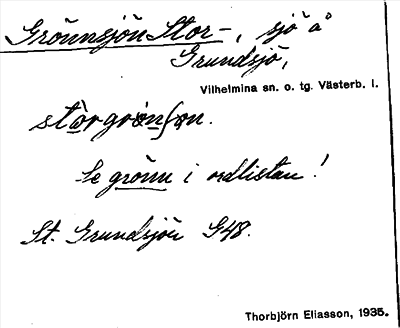 Grönnsjön Stor-, sjö å
Grundsjö,
Vilhelmina sn. o. tg. Västerb. l.
Se grönn i ordlistan!
St. Grundsjön G48.
Thorbjörn Eliasson, 1935.